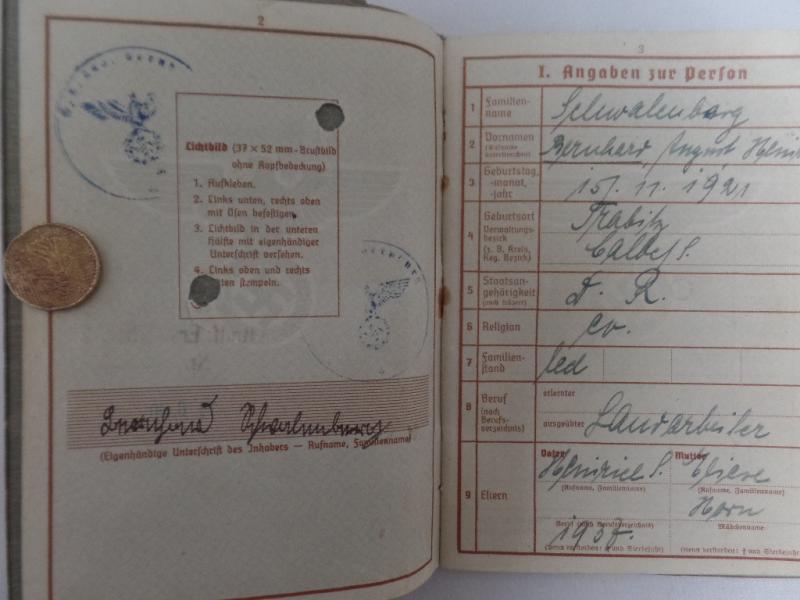 2
Lichtbild (37 × 52 mm-Brustbild
ohne Kopfbedeckung)
1. Aufkleben.
2. Links unten, rechts oben
mit Ösen befestigen.
3. Lichtbild in der unteren
Hälfte mit eigenhändiger
Unterschrift versehen.
4. Links oben und rechts
unten stempeln.
(Eigenhändige Unterschrift des Inhabers — Rufname, Familienname)
3
I. Angaben zur Person
1 Familien-
name
Schwalenberg
2 Vornamen
(Rufname
unterstreichen)
Bernhard, August
3 Geburtstag,
-monat,
-jahr
15. 11. 1921
4 Geburtsort
Verwaltungs-
bezirk
(z. B. Kreis,
Reg. Bezirk)
Trabitz
Calbe/S.
5 Staatsan-
gehörigkeit
(auch frühere)
D. R.
6 Religion
ev.
7 Familien-
stand
led
8 Beruf
(nach
Berufs-
verzeichnis)
erlernter
ausgeübter
Landarbeiter
9 Eltern
Vater
Heinrich S.
(Rufname, Familienname)
Beruf (nach Berufsverzeichnis)
1937.
(wenn verstorben: † und Sterbejahr)
Mutter
(Rufname, Familienname)
Horn
Mädchenname
(wenn verstorben: † und Sterbejahr)